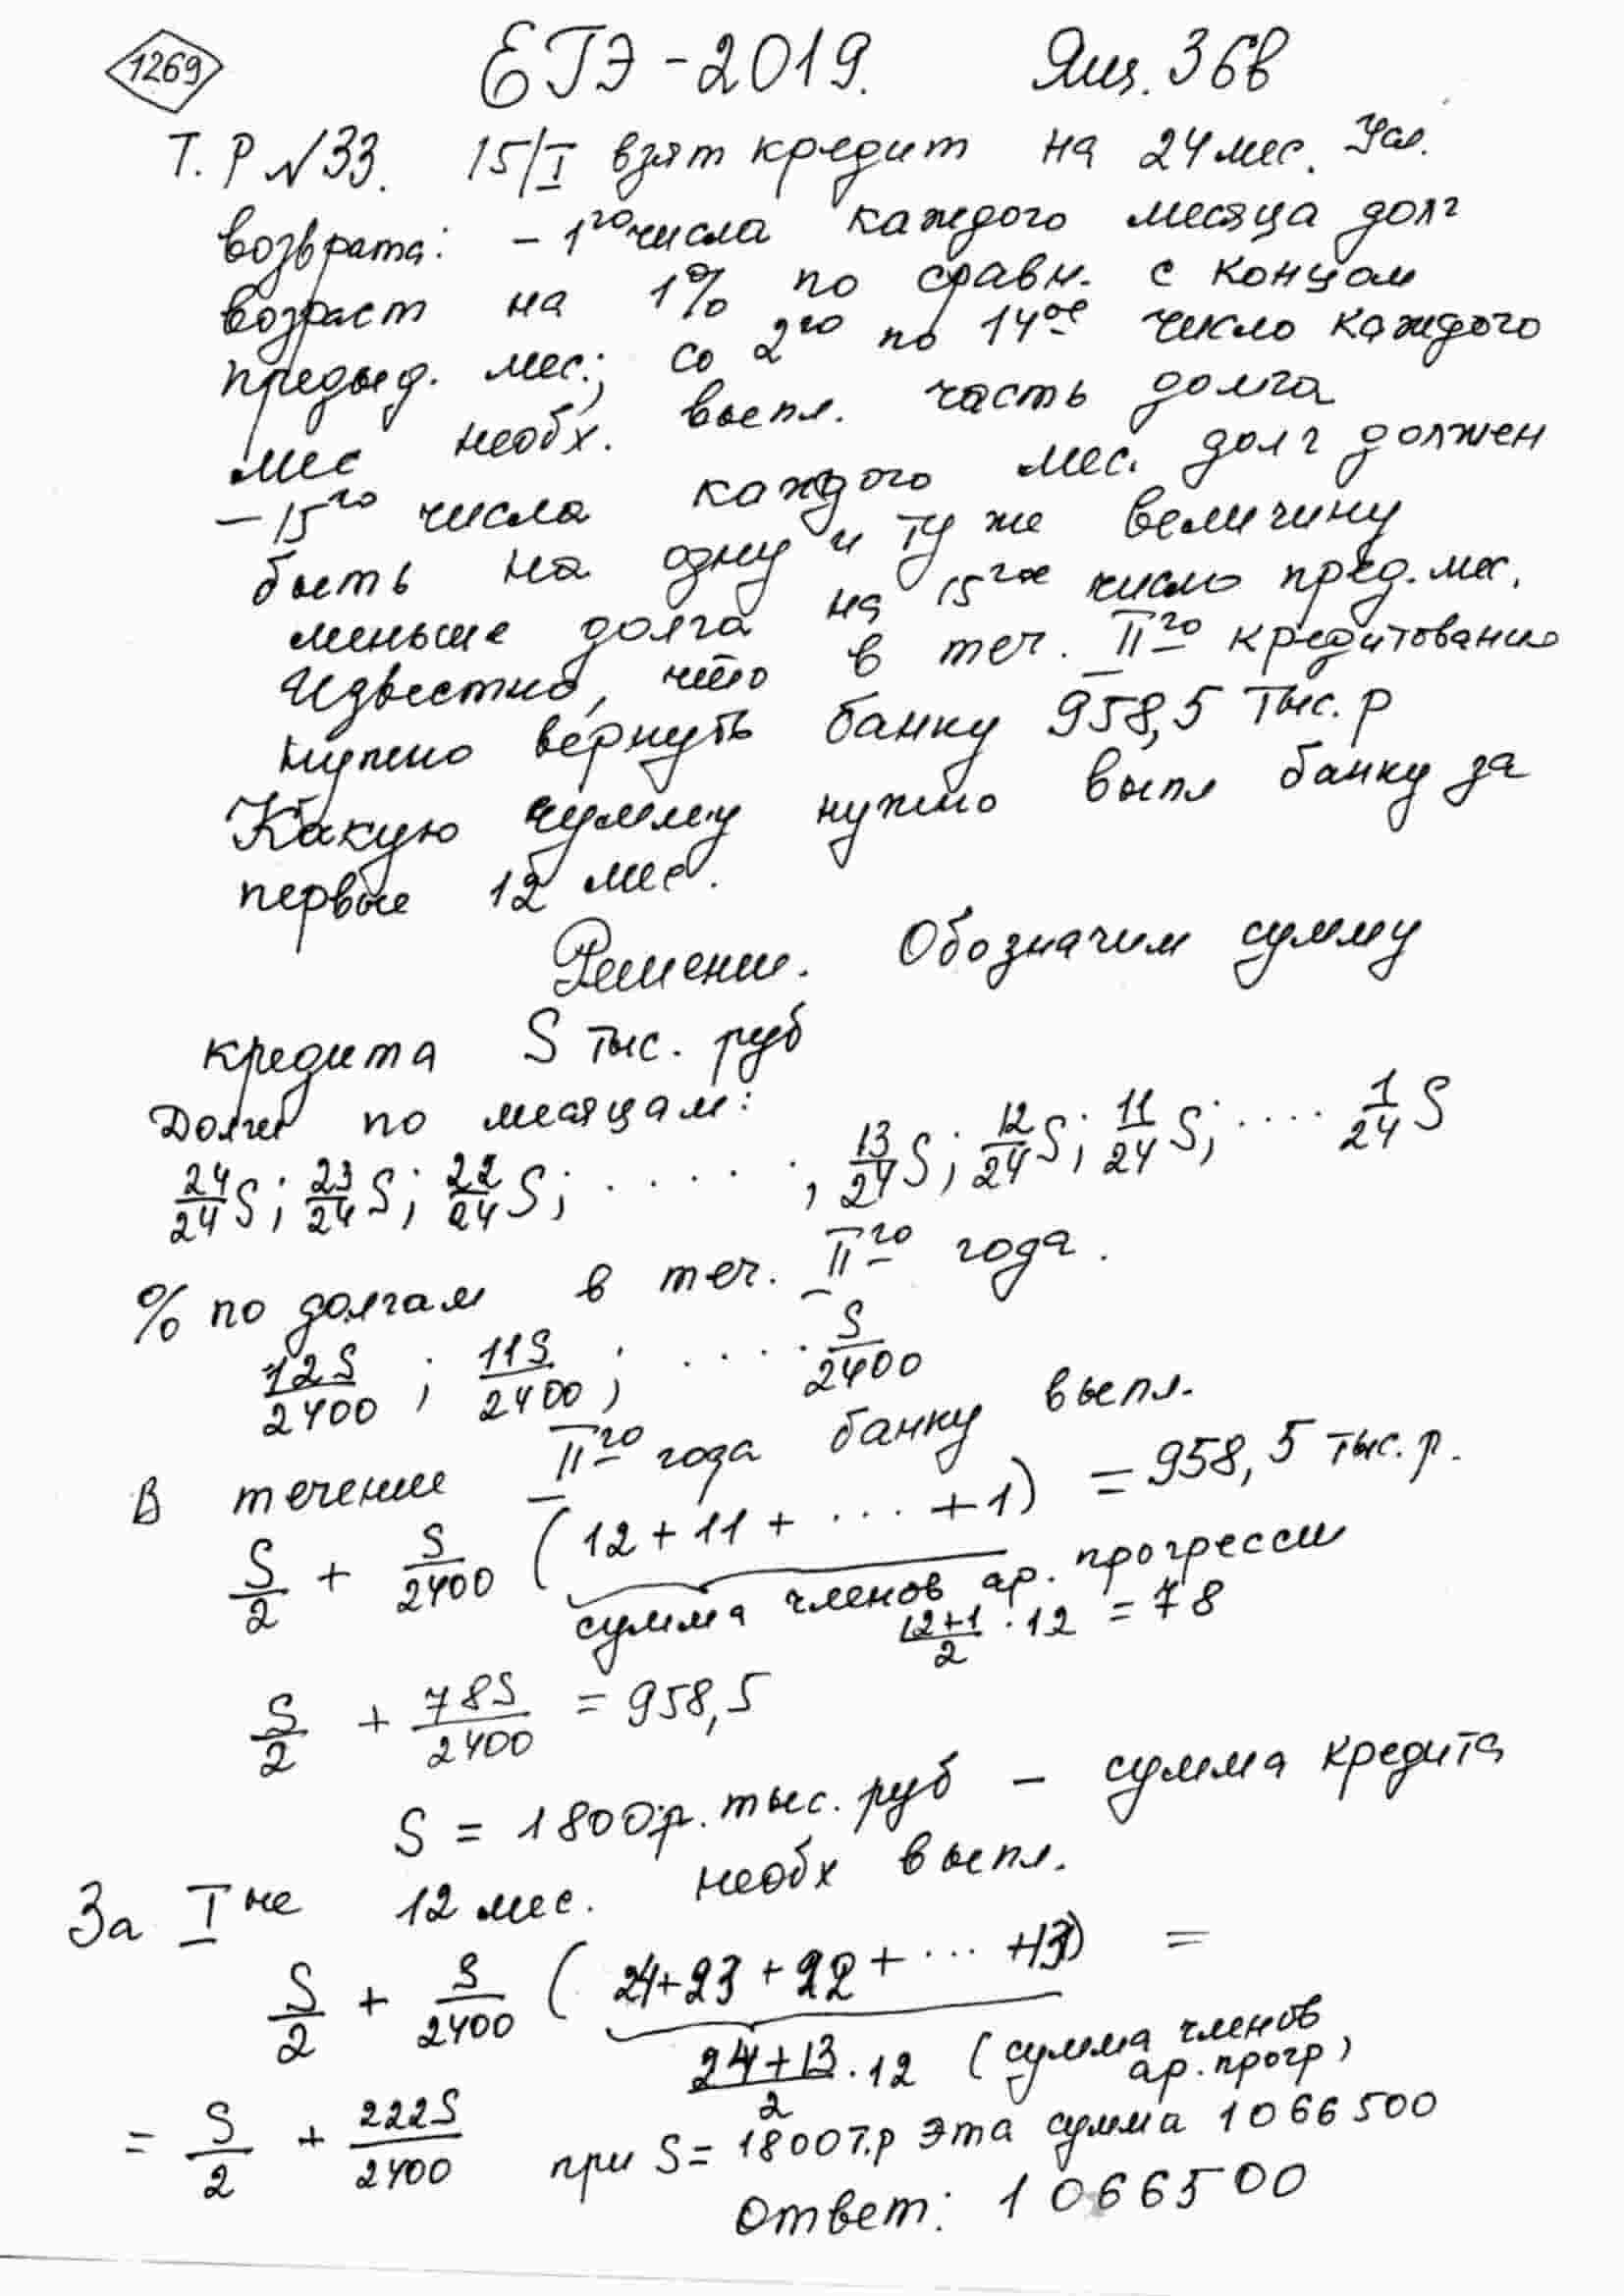 1269 ЕГЭ-2019. Ящ. 36в
Т. Р №33. 15/I взят кредит на 24 мес. Усл.
возврата: - 1го числа каждого месяца долг
возраст на 1% по сравн. с концом
предыд. мес.; со 2го по 14ое число каждого
мес необх. выпл. часть долга
- 15го числа каждого мес. долг должен
быть на одну и ту же величину
меньше долга на 15гое число пред. мес.
Известно, что в теч. IIго кредитования
нужно вернуть банку 958,5 тыс. р
Какую сумму нужно выпл банку за
первые 12 мес.
Решение. Обозначим сумму
кредита S тыс. руб
Долги по месяцам:
24/24 S; 23/24 S; 22/24 S; ....., 13/24 S; 12/24 S; 11/24 S; .... 1/24 S
% по долгам в теч. IIго года.
12S/2400; 11S/2400; .... S/2400
В течение IIго года банку выпл.
S/2 + S/2400 (12 + 11 + ... + 1) = 958,5 тыс. р.
сумма членов ар. прогресси
(12+1)/2 · 12 = 78
S/2 + 78S/2400 = 958,5
S = 1800р. тыс. руб - сумма кредита
За Iые 12 мес. необх выпл.
S/2 + S/2400 (24+23+22+ ... +13) =
(24+13)/2 · 12 (сумма членов
ар. прогр)
= S/2 + 222S/2400 при S = 1800 т.р эта сумма 1066500
Ответ: 1066500